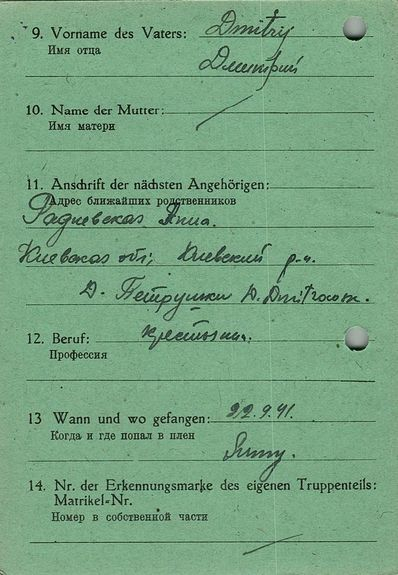 9. Vorname des Vaters: Dmitry
Имя отца
Дмитрий
10. Name der Mutter:
Имя матери
11. Anschrift der nächsten Angehörigen:
Адрес ближайших родственников
Радиевская Анна.
Киевская обл, Киевский р-н.
Д. Петрушки
12. Beruf: крестьянин.
Профессия
13 Wann und wo gefangen: 22.9.41.
Когда и где попал в плен
14. Nr. der Erkennungsmarke des eigenen Truppenteils:
Matrikel-Nr.
Номер в собственной части